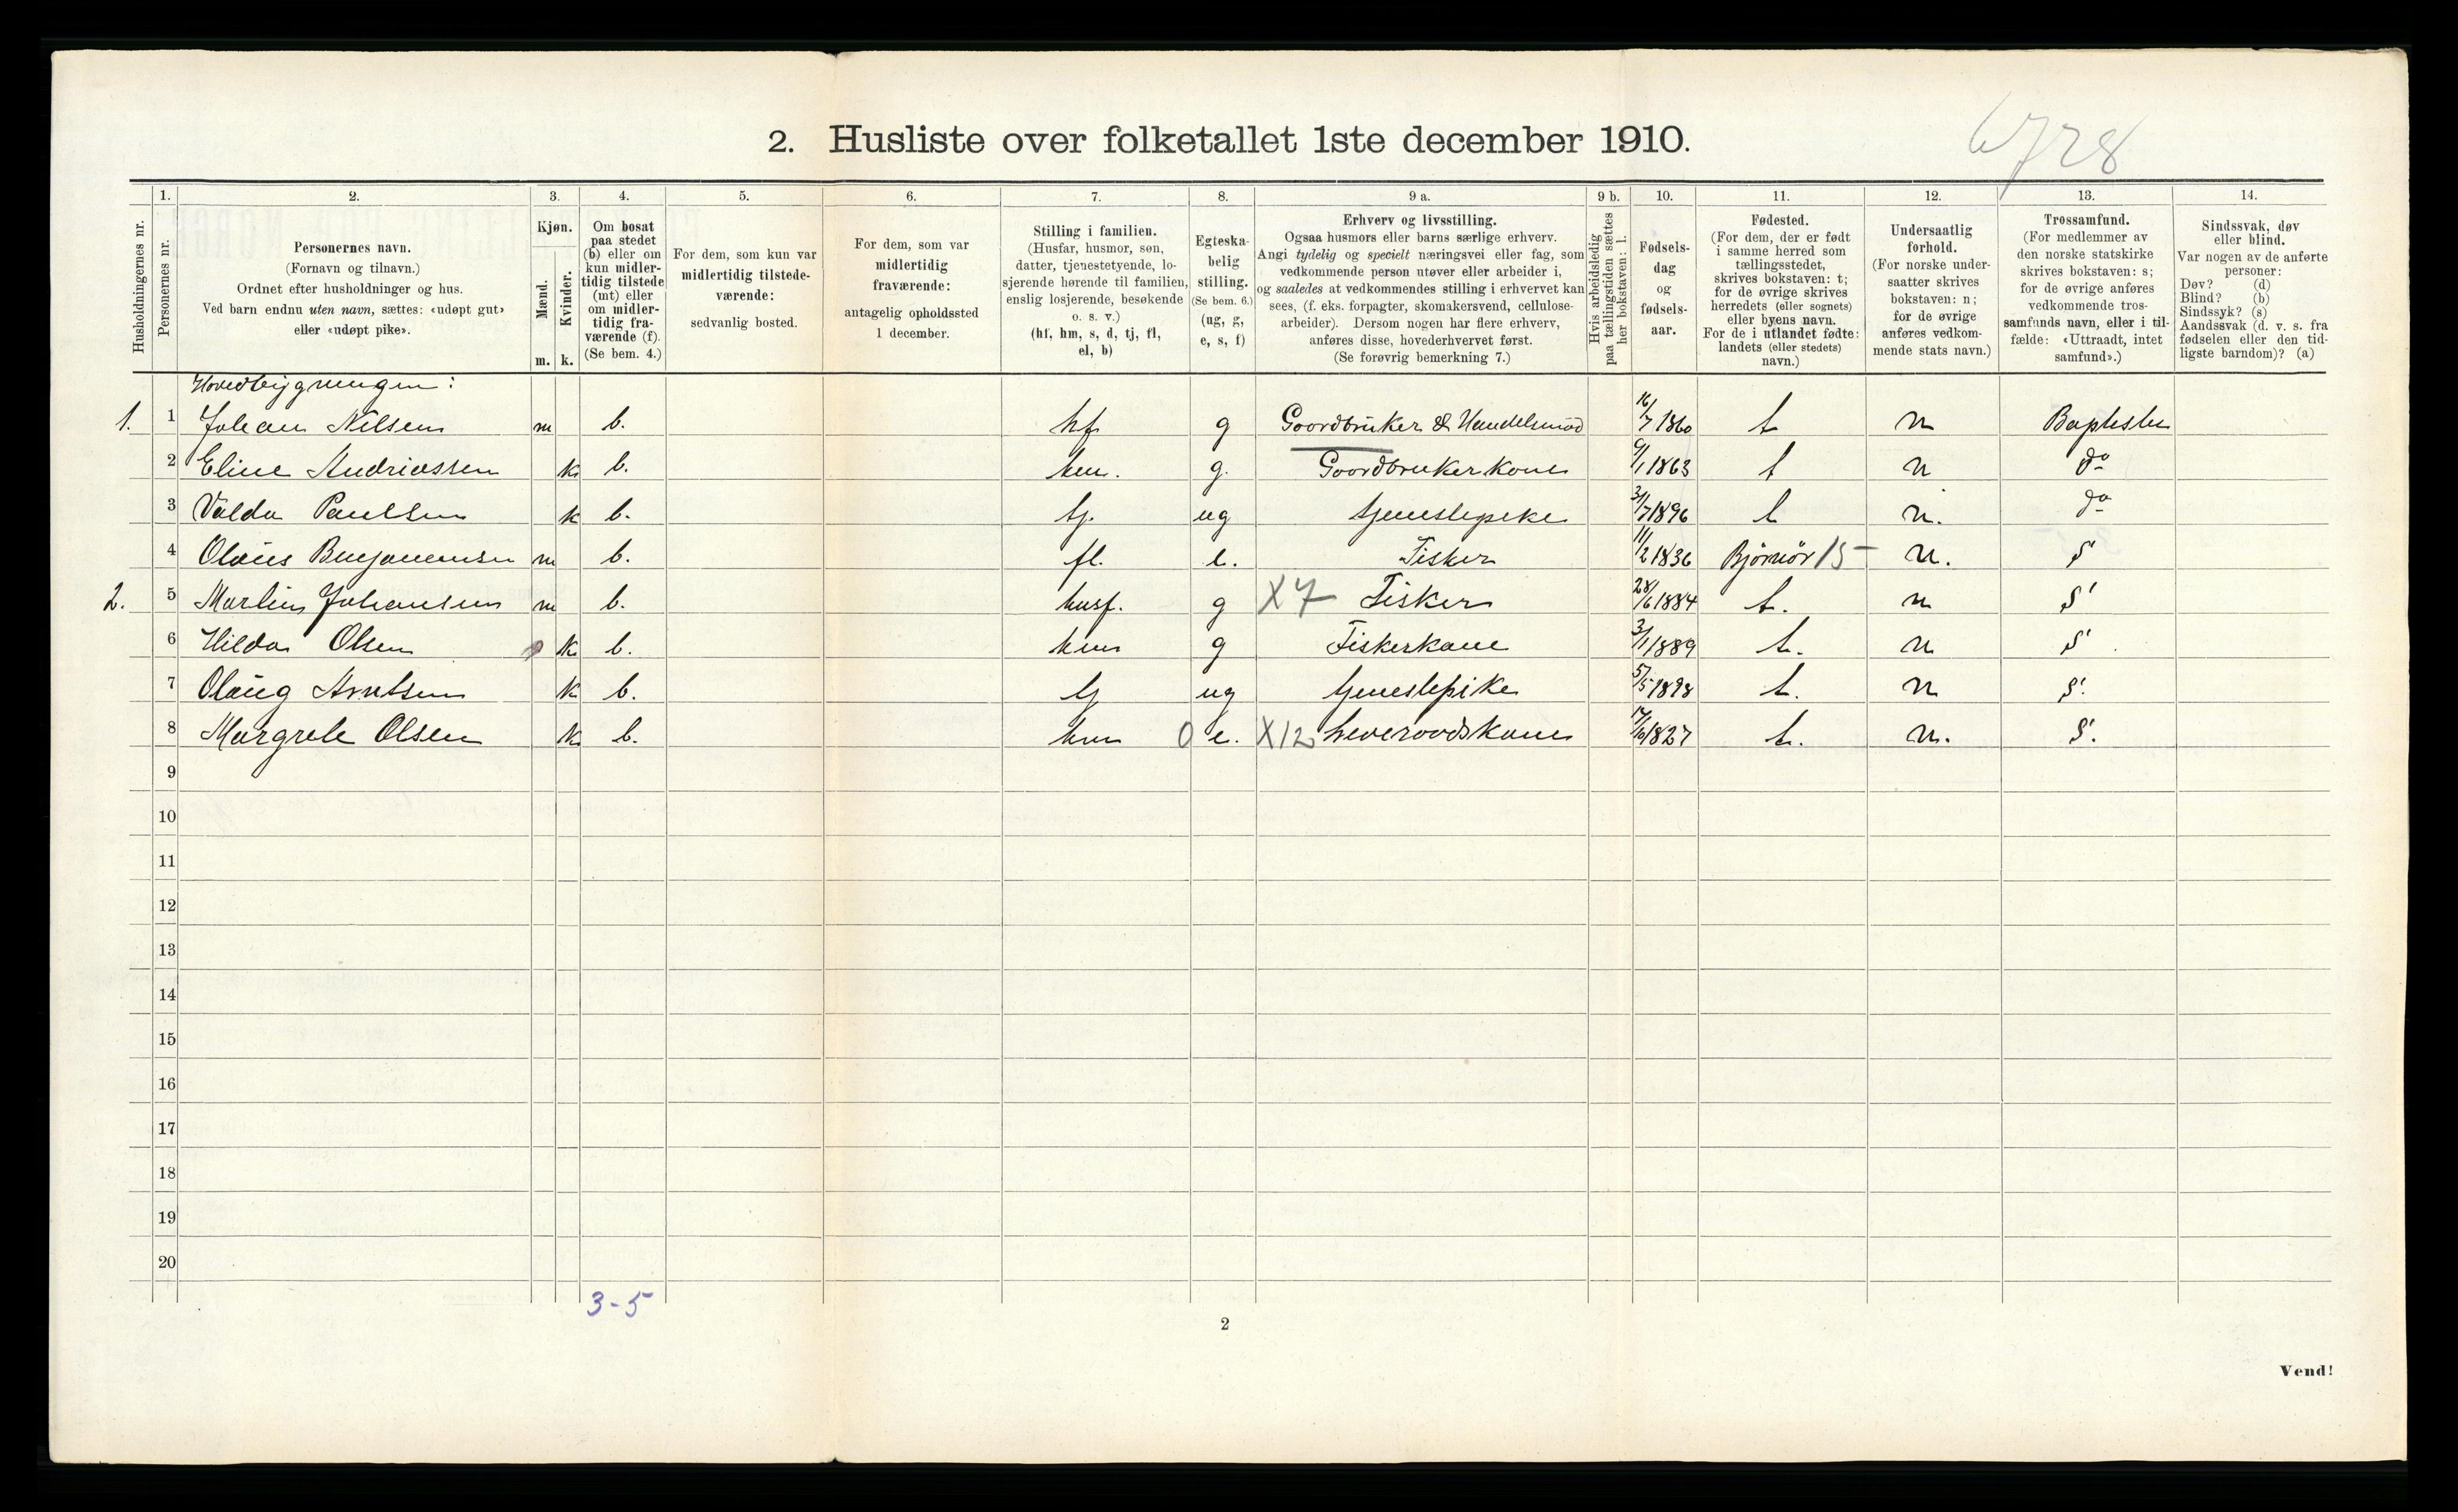 6728
2. Husliste over folketallet 1ste december 1910.
Husholdningernes nr.
1.
Personernes nr.
2.
Personernes navn.
(Fornavn og tilnavn.)
Ordnet efter husholdninger og hus.
Ved barn endnu uten navn, sættes: «udøpt gut»
eller «udøpt pike».
3.
Kjøn.
Mænd.
Kvinder.
m. k.
4.
Om bosat
paa stedet
(b) eller om
kun midler-
tidig tilstede
(mt) eller
om midler-
tidig fra-
værende (f).
(Se bem. 4.)
5.
For dem, som kun var
midlertidig tilstede-
værende:
sedvanlig bosted.
6.
For dem, som var
midlertidig
fraværende:
antagelig opholdssted
1 december.
7.
Stilling i familien.
(Husfar, husmor, søn,
datter, tjenestetyende, lo-
sjerende hørende til familien,
enslig losjerende, besøkende
o. s. v.)
(hf, hm, s, d, tj, fl,
el, b)
8.
Egteska-
belig
stilling.
(Se bem. 6.)
(ug, g,
e, s, f)
9 a.
Erhverv og livsstilling.
Ogsaa husmors eller barns særlige erhverv.
Angi tydelig og specielt næringsvei eller fag, som
vedkommende person utøver eller arbeider i,
og saaledes at vedkommendes stilling i erhvervet kan
sees, (f. eks. forpagter, skomakersvend, cellulose-
arbeider). Dersom nogen har flere erhverv,
anføres disse, hovederhvervet først.
(Se forøvrig bemerkning 7.)
9 b.
Hvis arbeidsledig
paa tællingstiden sættes
her bokstaven: l.
10.
Fødsels-
dag
og
fødsels-
aar.
11.
Fødested.
(For dem, der er født
i samme herred som
tællingsstedet,
skrives bokstaven: t;
for de øvrige skrives
herredets (eller sognets)
eller byens navn.
For de i utlandet fødte:
landets (eller stedets)
navn.)
12.
Undersaatlig
forhold.
(For norske under-
saatter skrives
bokstaven: n;
for de øvrige
anføres vedkom-
mende stats navn.)
13.
Trossamfund.
(For medlemmer av
den norske statskirke
skrives bokstaven: s;
for de øvrige anføres
vedkommende tros-
samfunds navn, eller i til-
fælde: «Uttraadt, intet
samfund».)
14.
Sindssvak, døv
eller blind.
Var nogen av de anførte
personer:
Døv? (d)
Blind? (b)
Sindssyk? (s)
Aandssvak (d. v. s. fra
fødselen eller den tid-
ligste barndom)? (a)
Hovedbygningen:
1. 1 Johan Nilsen m b. hf g Goordbruker & Handelsmod 16/7 1860 t n Baptister
2 Eline Andriassen k b. hm. g. Goordbrukerkone 9/1 1863 t n do
3 Valda Paulsen k b. tj. ug tjenestepike 3/7 1896 t n. do
4 Olaus Benjamensen m b. fl. e. Fisker 11/2 1836 Bjørnör 15 - n. S
2. 5 Martin Johansen m b. husf. g X7 Fisker 28/6 1884 t. n S
6 Hilda Olsen k b. hm g Fiskerkone 3/1 1889 t. n S
7 Olaug Arntsen k b. tj ug tjenestepike 5/5 1898 t. n S.
8 Margrete Olsen k b. hm 0 e. X12 Leveroodskone 17/6 1827 t. n. S.
9
10
11
12
13
14
15
16
17
18
19
20
3-5
2
Vend!